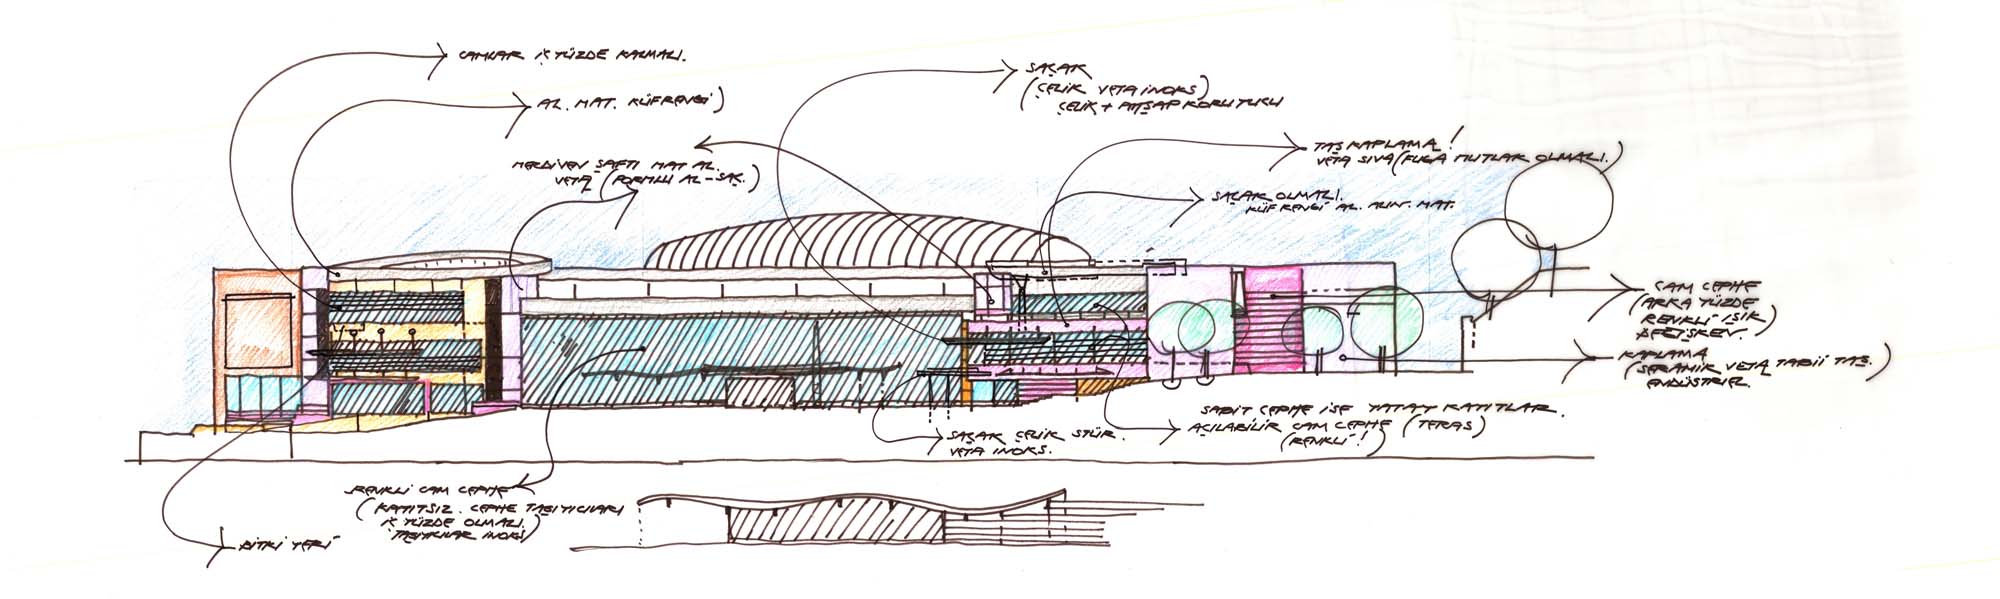 CAMLAR İÇ YÜZDE KALMALI.
AL. MAT. KÜF RENGİ)
MERDİVEN ŞAFTI MAT AL.
VEYA (FORMLU AL-SAÇ.)
SAÇAK
(ÇELİK VEYA İNOKS)
ÇELİK + AHŞAP KORUYUCU
TAŞ KAPLAMA!
VEYA SIVA (FUGA MUTLAK OLMALI.)
SAÇAK OLMALI.
KÜF RENGİ AL. ALIN. MAT.
CAM CEPHE
(ARKA YÜZDE
RENKLİ IŞIK)
KAPLAMA
(SERAMİK VEYA TABİİ TAŞ.)
SABİT CEPHE İSE YATAY KAYITLAR.
AÇILABİLİR CAM CEPHE (TERAS)
(RENKLİ!)
SAÇAK ÇELİK STÜR.
VEYA İNOKS.
RENKLİ CAM CEPHE
(KAYITSIZ. CEPHE TAŞIYICILARI
İÇ YÜZDE OLMALI.)
TAŞIYICILAR İNOKS)
BİTKİ YERİ